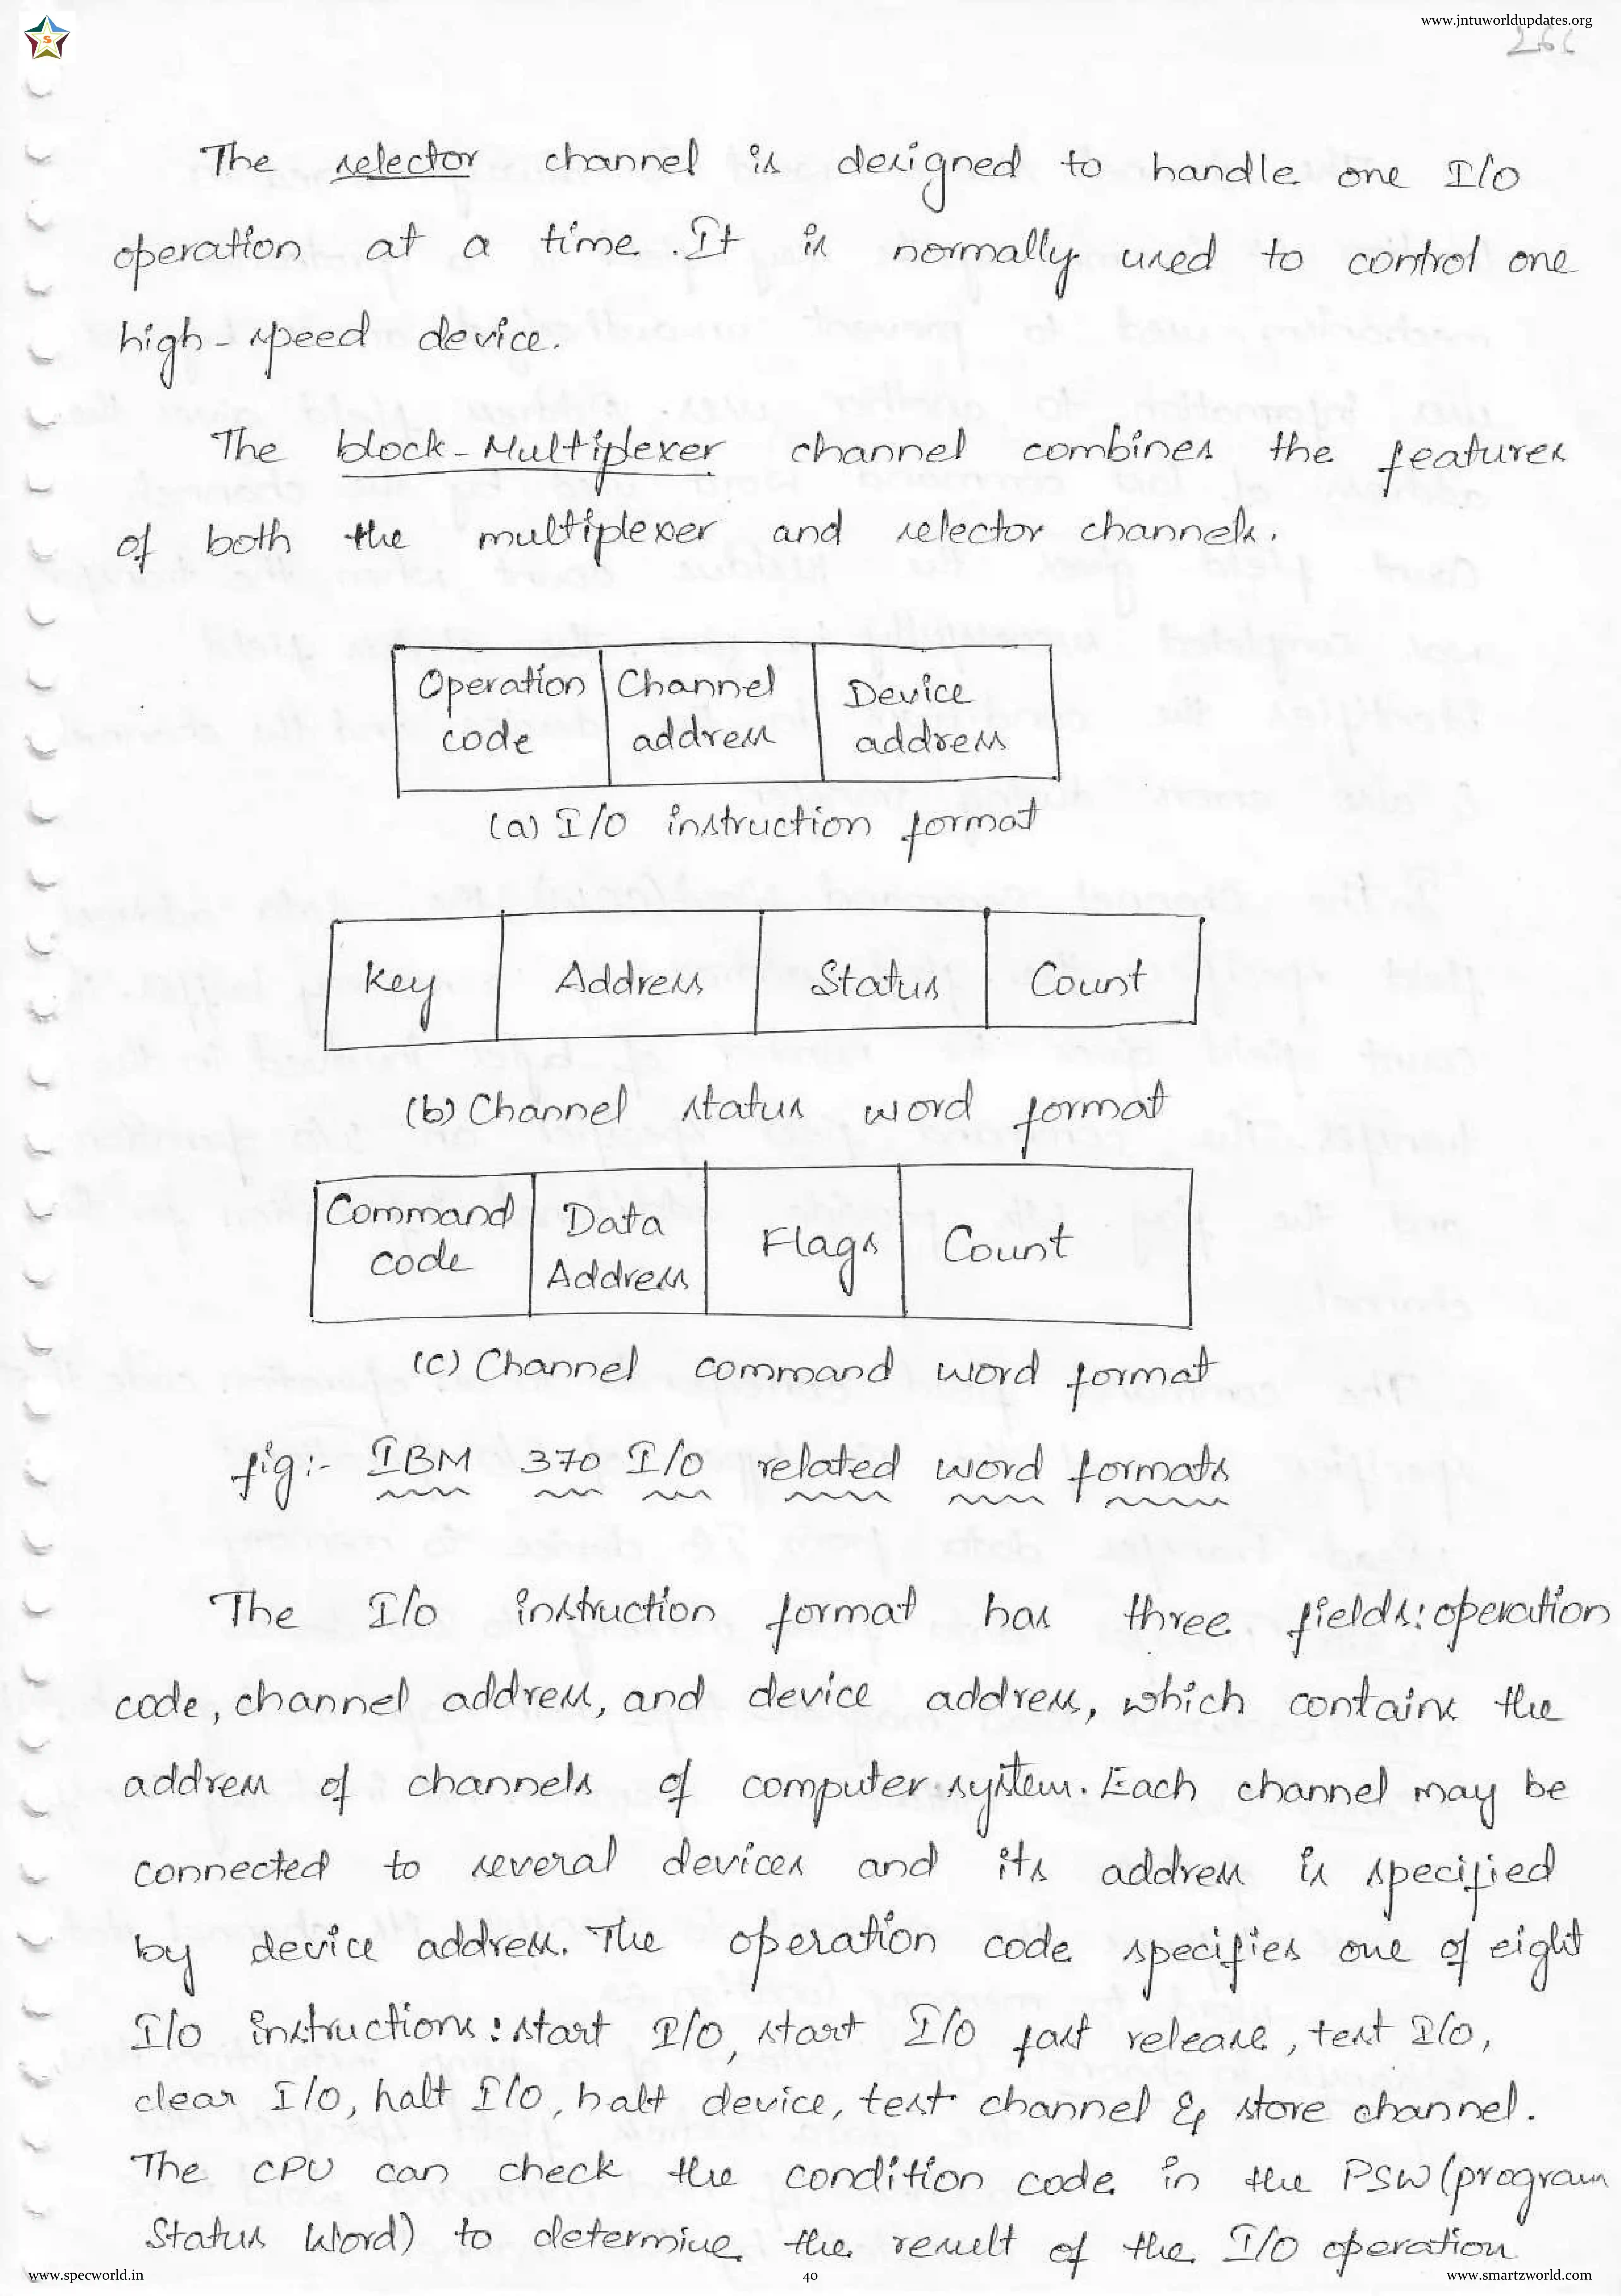 www.jntuworldupdates.org
The selector channel is designed to handle one I/O
operation at a time. It is normally used to control one
high-speed device.
The block-Multiplexer channel combines the features
of both the multiplexer and selector channels.
Operation code Channel address Device address
(a) I/O instruction format
Key Address Status Count
(b) Channel status word format
Command code Data Address Flags Count
(c) Channel command word format
fig:- IBM 370 I/O related word formats
The I/O instruction format has three fields: operation
code, channel address, and device address, which contains the
address of channels of computer system. Each channel may be
connected to several devices and its address is specified
by device address. The operation code specifies one of eight
I/O instructions: start I/O, start I/O fast release, test I/O,
clear I/O, halt I/O, halt device, test channel & store channel.
The CPU can check the condition code in the PSW (program
Status Word) to determine the result of the I/O operation
www.specworld.in
40
www.smartzworld.com